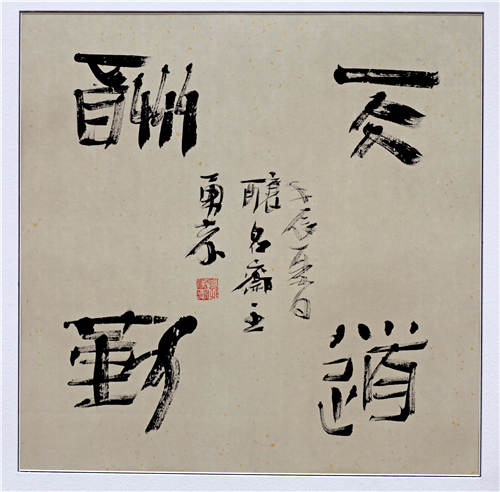 天道
壬辰夏日
名齋主
勇
酬勤